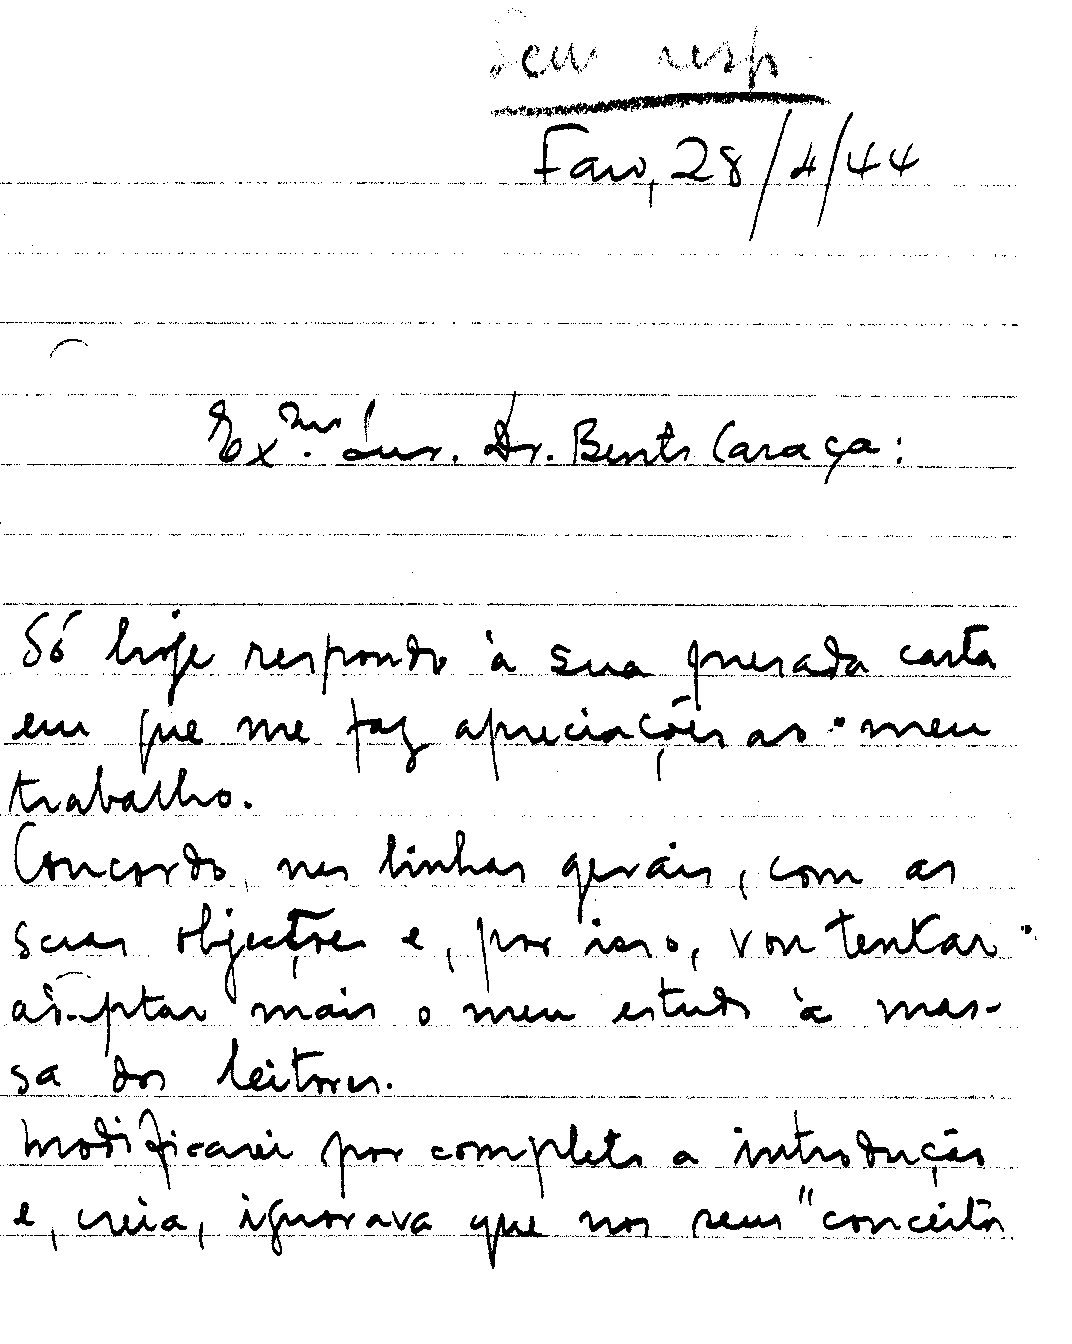 resp.
Faro, 28/4/44
Exmo. Snr. Dr. Bento Caraça:
Só hoje respondo à sua prezada carta
em que me faz apreciações ao meu
trabalho.
Concordo, nas linhas gerais, com as
suas objecções e, por isso, vou tentar
adaptar mais o meu estudo à mas-
sa dos leitores.
Modificarei por completo a introdução
e, creia, ignorava que nos seus "conceitos